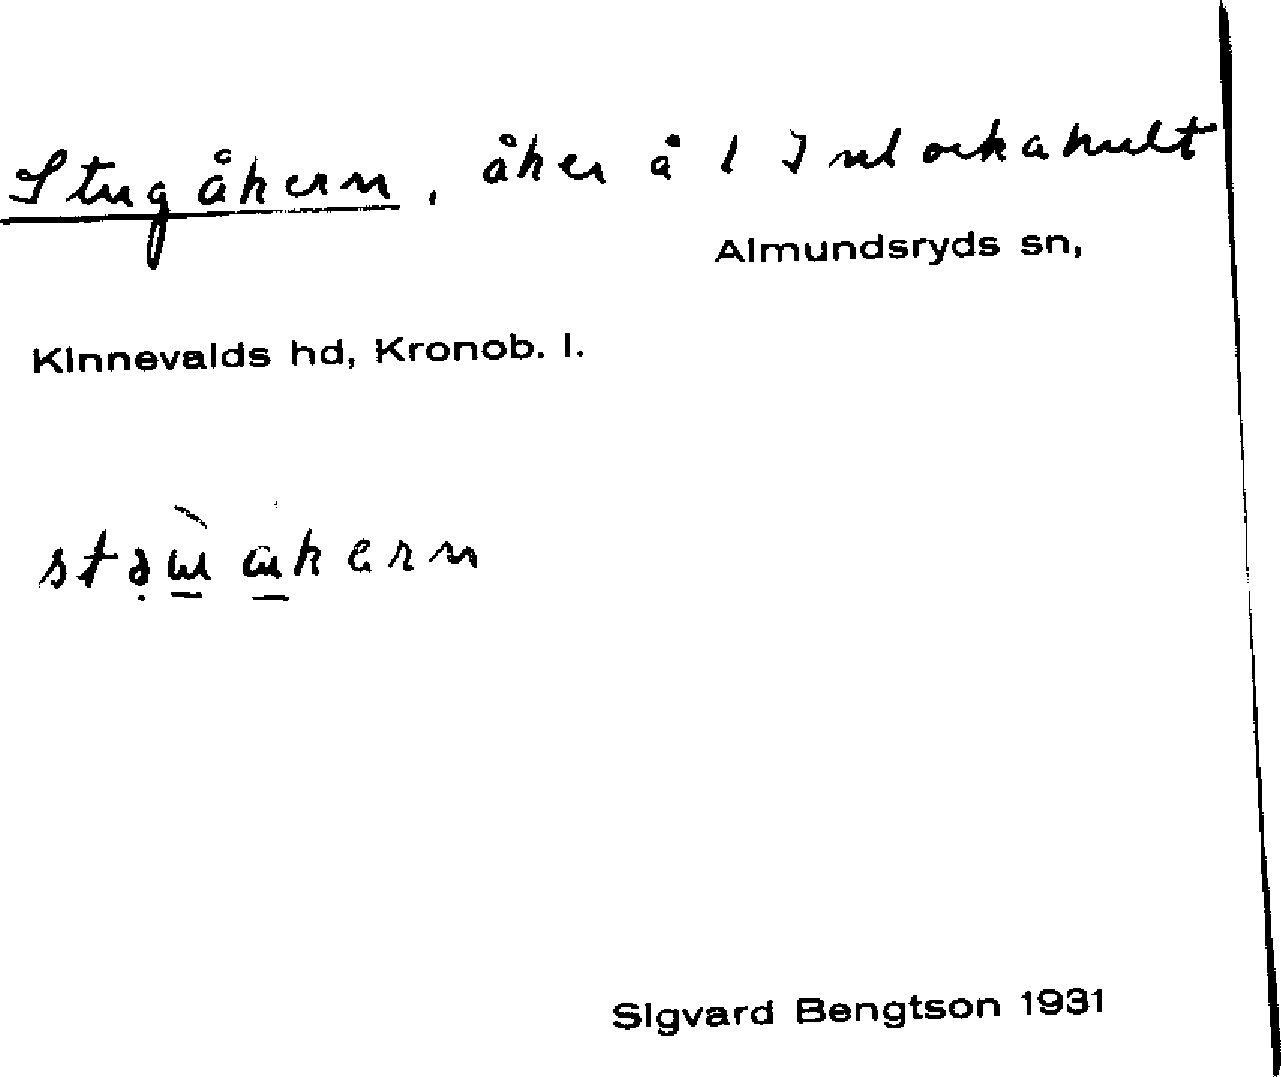 Stugåkern, åker å 1 Inlockahult
Almundsryds sn,
Kinnevalds hd, Kronob. l.
Sigvard Bengtson 1931